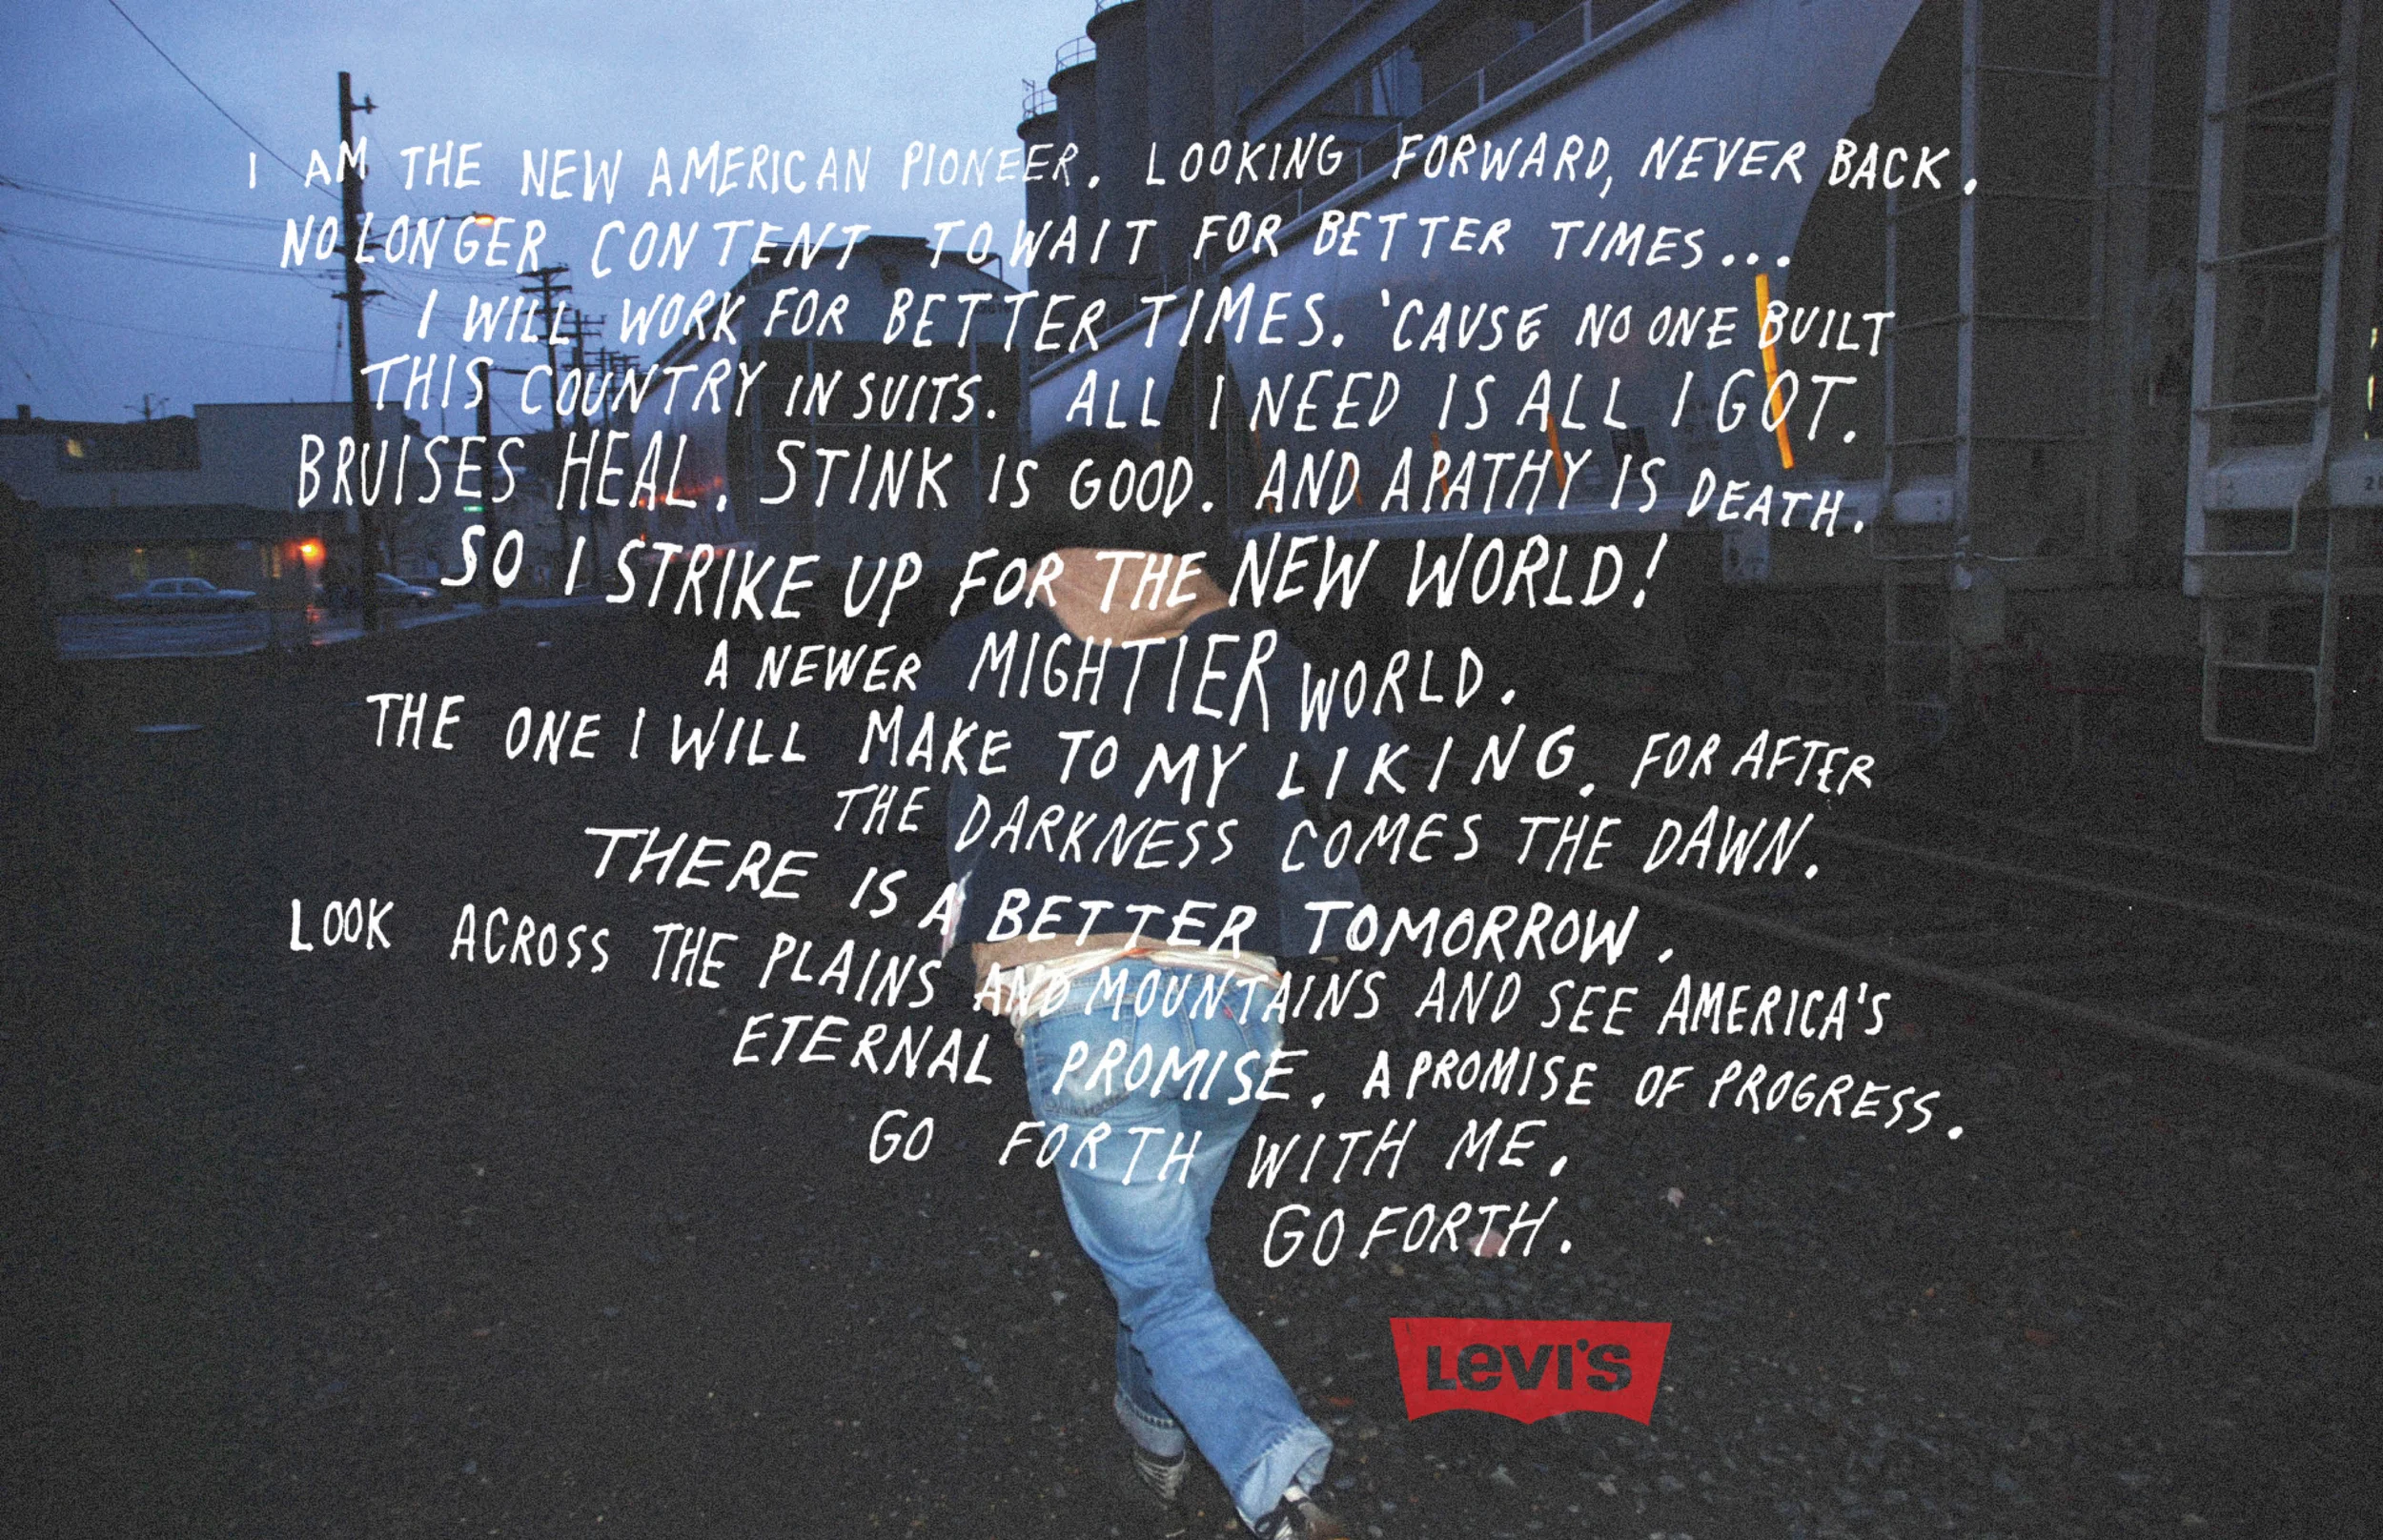 I AM THE NEW AMERICAN PIONEER. LOOKING FORWARD, NEVER BACK.
NO LONGER CONTENT TO WAIT FOR BETTER TIMES...
I WILL WORK FOR BETTER TIMES. 'CAUSE NO ONE BUILT
THIS COUNTRY IN SUITS. ALL I NEED IS ALL I GOT.
BRUISES HEAL. STINK IS GOOD. AND APATHY IS DEATH.
SO I STRIKE UP FOR THE NEW WORLD!
A NEWER MIGHTIER WORLD.
THE ONE I WILL MAKE TO MY LIKING. FOR AFTER
THE DARKNESS COMES THE DAWN.
THERE IS A BETTER TOMORROW.
LOOK ACROSS THE PLAINS AND MOUNTAINS AND SEE AMERICA'S
ETERNAL PROMISE. A PROMISE OF PROGRESS.
GO FORTH WITH ME.
GO FORTH.
LEVI'S